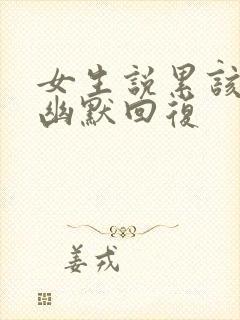 女生說累該
幽默回復
姜戎